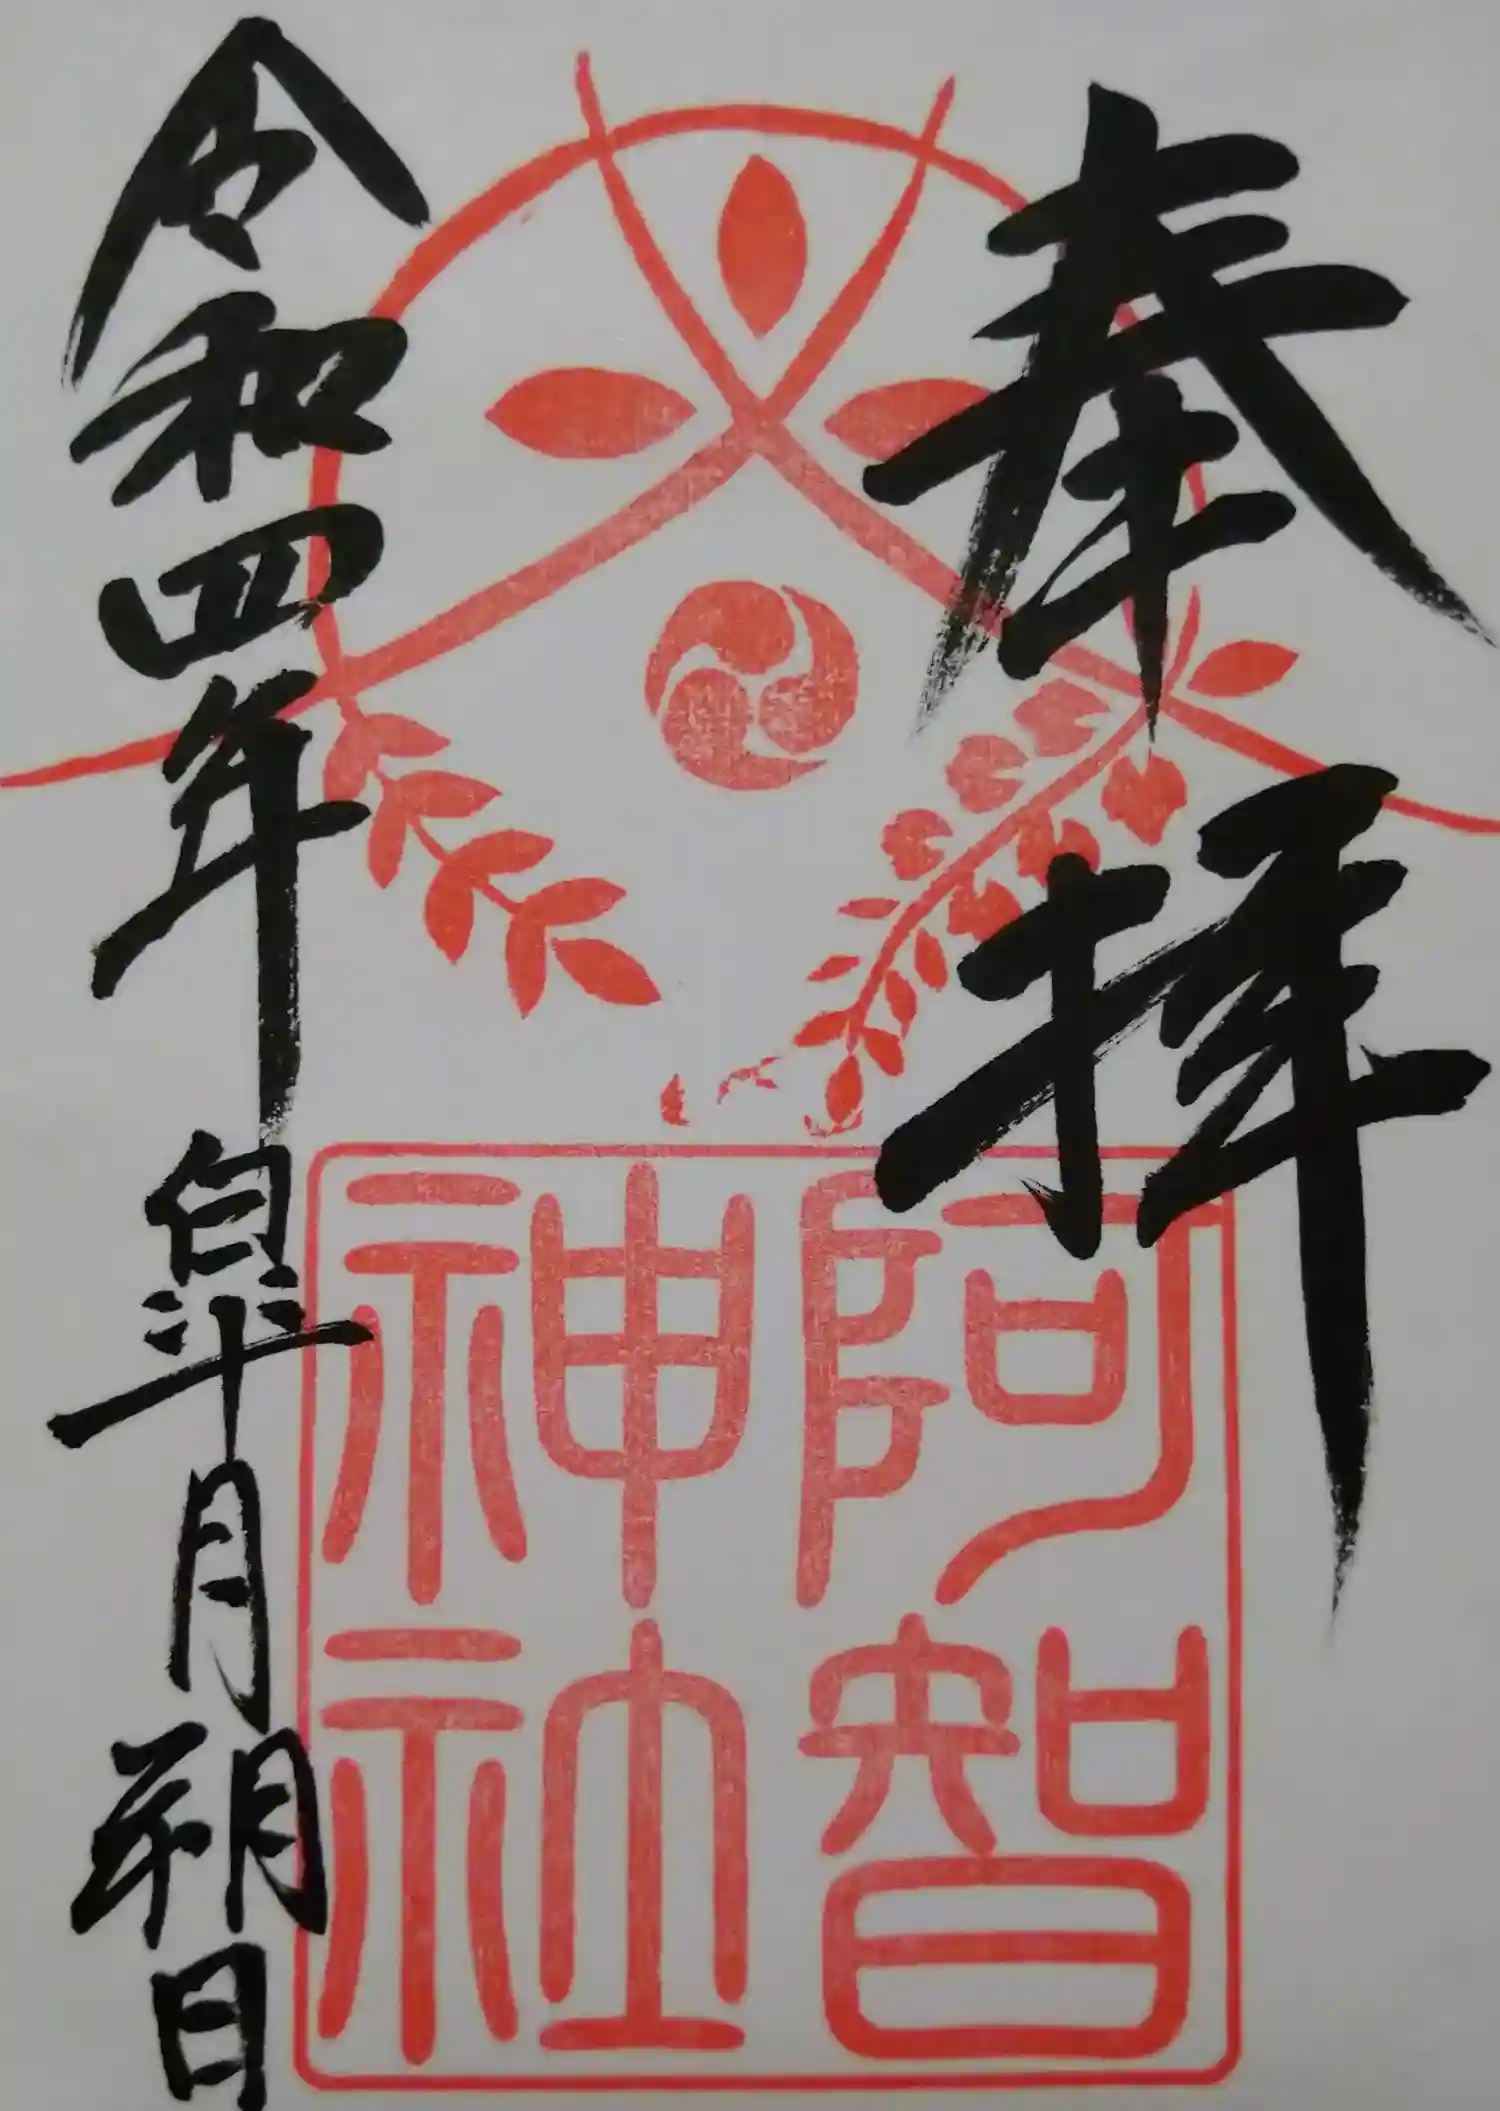 奉拝
阿智
神社
令和四年皐月朔日